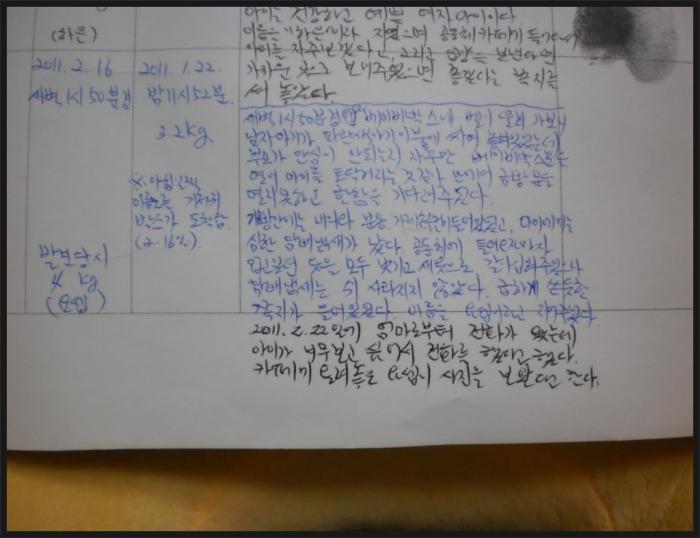 아이는 건강하고 예쁜 여자아이이다.
(하은)
이름을 "하은"이라 지었으며 공동체 카페에 들어가서
아이를 자주 보겠다고, 그리고 입양을 보낸다면
가까운 곳으로 보내주었으면 좋겠다는 쪽지를
써 놓았다.
2011. 2. 16
새벽 1시 50분경
2011. 1. 22.
밤 11시 52분.
3.2kg
※ 아침
이름모를 기저귀
박스가 도착함.
(2.16%)
발견당시
4 kg
(요셉)
새벽 1시 50분경 베이비박스내 벨이 울려 가보니
남자아기가 파란색아기이불에 싸여 놓여있었는데
부모가 안심이 안되는지 자꾸만 베이비박스문을
열어 아이를 토닥거리는 것 같아 안에서 금방 문을
열지 못하고 한참을 기다려주었다.
심한 담배냄새가 났다. 공동체에 들어오자마자
입은 옷을 모두 벗기고 새옷으로 갈아입혀주었으나
담배냄새는 쉬 사라지지 않았다. 급하게 쓴듯한
쪽지가 들어있었다. 이름을 요셉이라고 지어주었다.
2011. 2. 22일에 엄마로부터 전화가 왔는데
아이가 너무 보고 싶어서 전화를 했다고 했다.
카페에 올려놓은 요셉이 사진을 보았다고 한다.